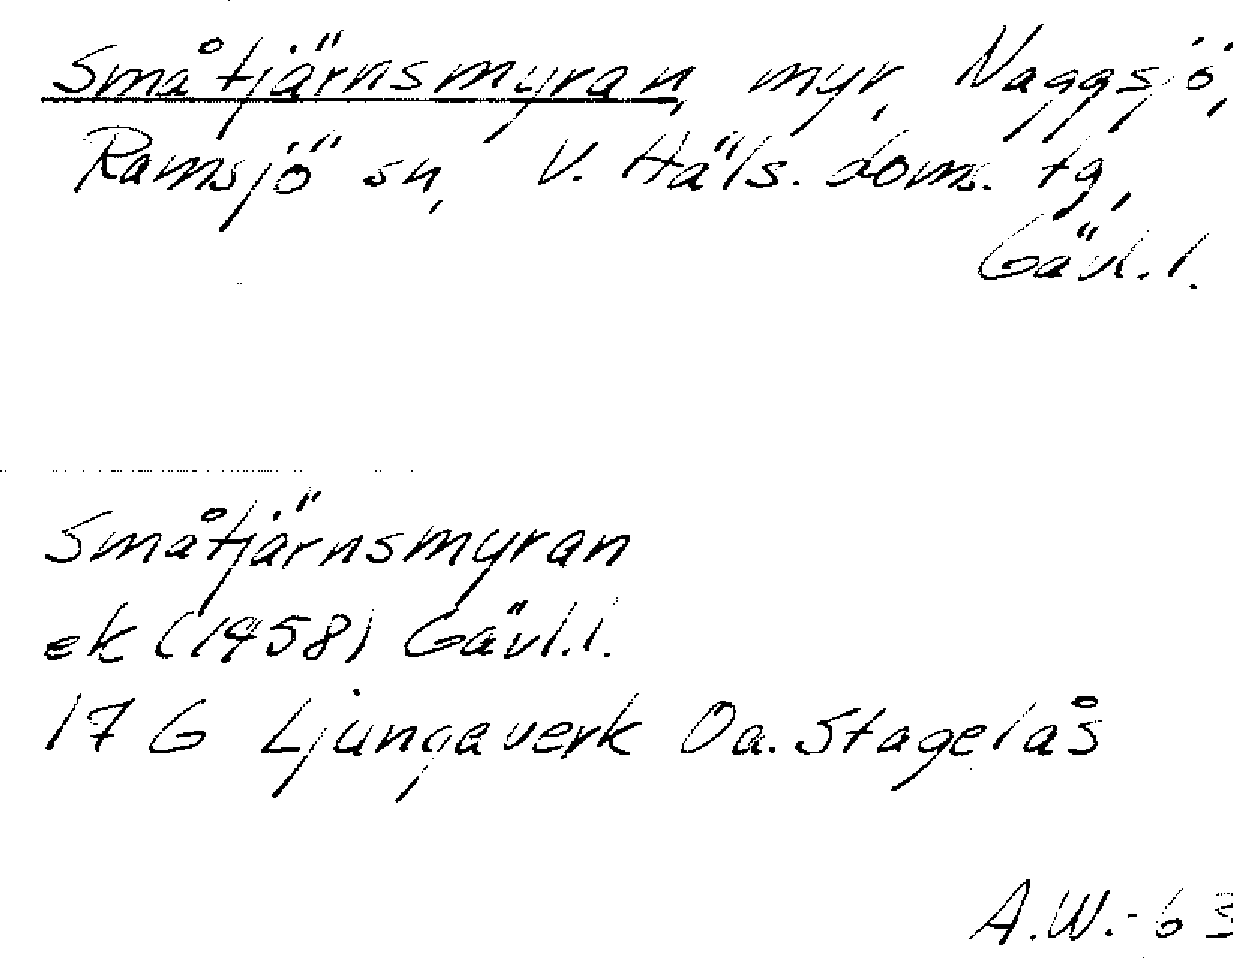 Småtjärnsmyran, myr, Naggsjö,
Ramsjö sn, V. Häls. doms. tg,
Gävl. l.
Småtjärnsmyran
ek (1958) Gävl. l.
17 G Ljungaverk Oa. Stagelås
A.W.-63